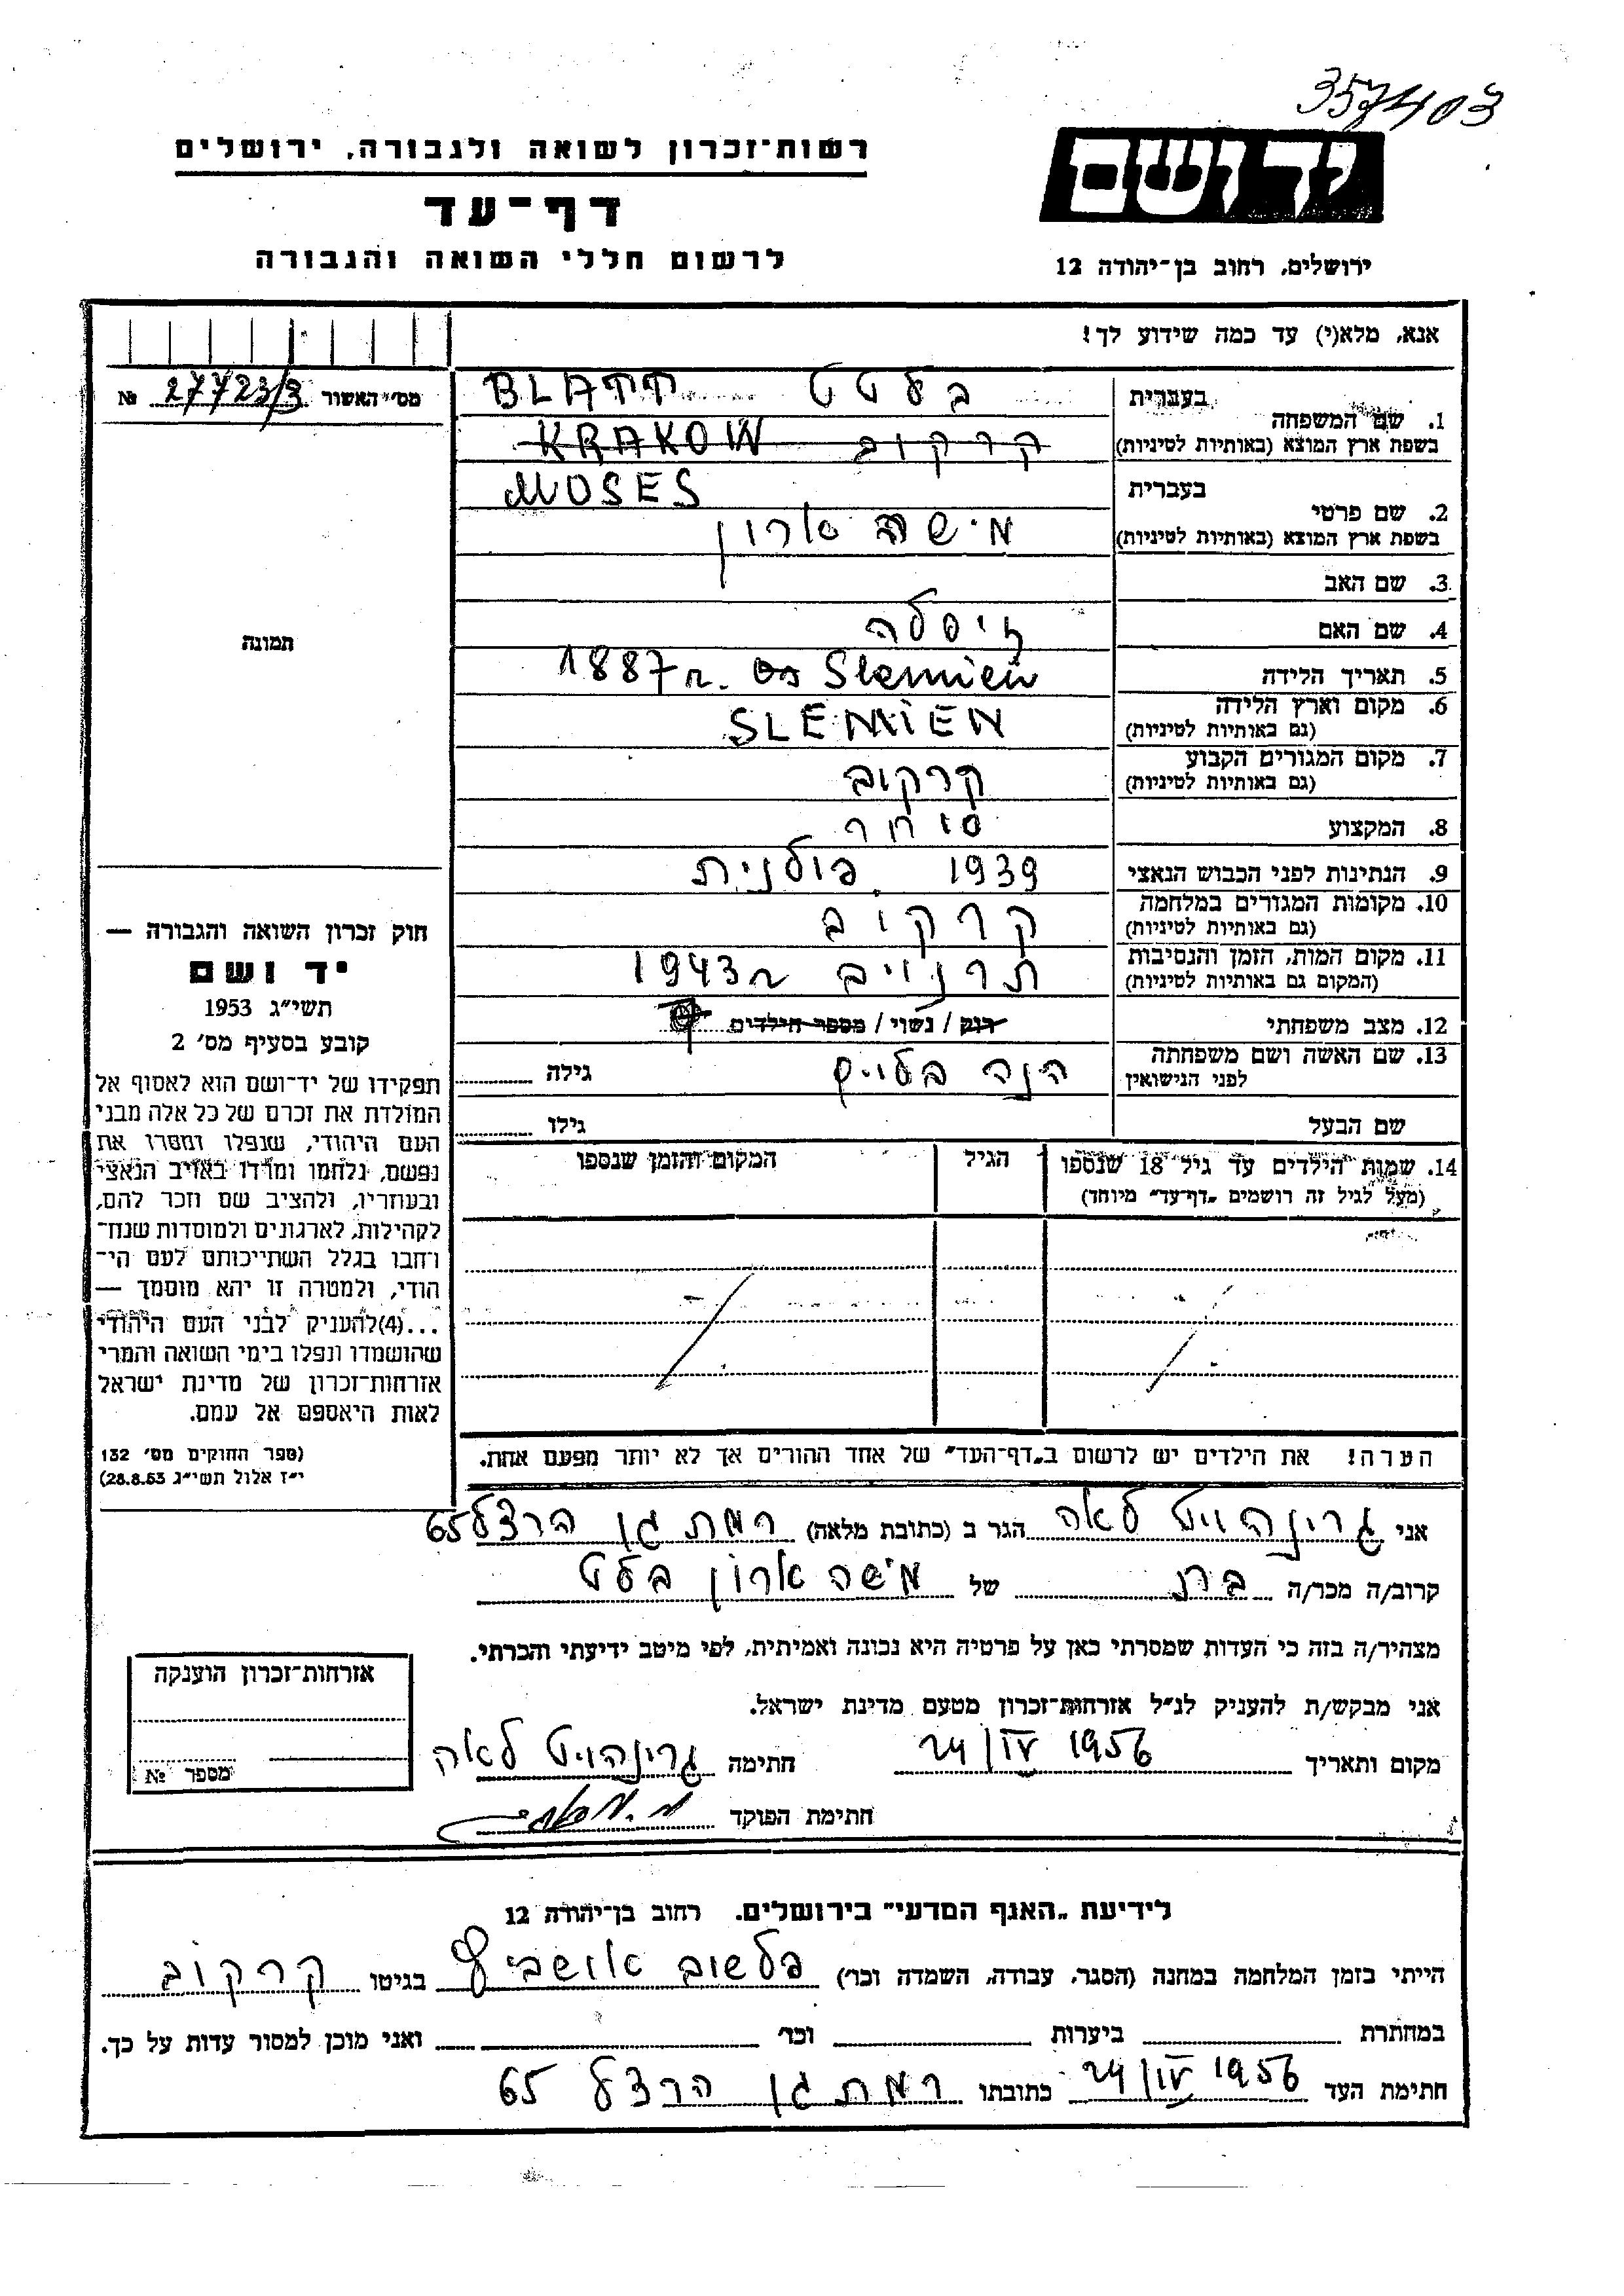 357403
רשות־זכרון לשואה ולגבורה, ירושלים
יד ושם
דף־עד
לרשום חללי השואה והגבורה
ירושלים, רחוב בן־יהודה 12
אנא, מלא(י) עד כמה שידוע לך!
מס׳ האשור 27723/3 №
1. שם המשפחה
בעברית בלטט BLATT
בשפת ארץ המוצא (באותיות לטיניות) קרקוב KRAKOW
2. שם פרטי
בעברית MOSES
בשפת ארץ המוצא (באותיות לטיניות) משה ארון
3. שם האב
4. שם האם
תמונה
5. תאריך הלידה 1887 r. Slemień
6. מקום וארץ הלידה SLEMIEN
(גם באותיות לטיניות)
7. מקום המגורים הקבוע קרקוב
(גם באותיות לטיניות)
8. המקצוע סוחר
9. הנתינות לפני הכבוש הנאצי 1939 פולנית
10. מקומות המגורים במלחמה קרקוב
(גם באותיות לטיניות)
11. מקום המות, הזמן והנסיבות 1943 r
(המקום גם באותיות לטיניות)
12. מצב משפחתי רוק / נשוי / מספר הילדים
13. שם האשה ושם משפחתה הנה גילה
לפני הנישואין
שם הבעל גילו
14. שמות הילדים עד גיל 18 שנספו הגיל המקום והזמן שנספו
(מעל לגיל זה רושמים „דף־עד״ מיוחד)
חוק זכרון השואה והגבורה —
יד ושם
תשי״ג 1953
קובע בסעיף מס׳ 2
תפקידו של יד־ושם הוא לאסוף אל
המולדת את זכרם של כל אלה מבני
העם היהודי, שנפלו ומסרו את
נפשם, נלחמו ומרדו באויב הנאצי
ובעוזריו, ולהציב שם וזכר להם,
לקהילות, לארגונים ולמוסדות שנח־
רחבו בגלל השתייכותם לעם הי־
הודי, ולמטרה זו יהא מוסמך —
...(4)להעניק לבני העם היהודי
שהושמדו ונפלו בימי השואה והמרי
אזרחות־זכרון של מדינת ישראל
לאות היאספם אל עמם.
(ספר החוקים מס׳ 132
י״ז אלול תשי״ג 28.8.53)
הערה! את הילדים יש לרשום ב„דף־העד״ של אחד ההורים אך לא יותר מפעם אחת.
אני גרינהויט לאה הגר ב (כתובת מלאה) רמת גן הרצל 65
קרוב/ה מכר/ה בת של משה ארון בלט
מצהיר/ה בזה כי העדות שמסרתי כאן על פרטיה היא נכונה ואמיתית, לפי מיטב ידיעתי והכרתי.
אני מבקש/ת להעניק לנ״ל אזרחות־זכרון מטעם מדינת ישראל.
מקום ותאריך 24/IV 1956 חתימה גרינהויט לאה
חתימת הפוקד
אזרחות־זכרון הוענקה
מספר №
לידיעת „האגף המדעי״ בירושלים. רחוב בן־יהודה 12
הייתי בזמן המלחמה במחנה (הסגר, עבודה, השמדה וכר׳) פלשוב אושביץ בגיטו קרקוב
במחתרת ביערות וכר׳ ואני מוכן למסור עדות על כך.
חתימת העד 24/IV 1956 כתובתו רמת גן הרצל 65